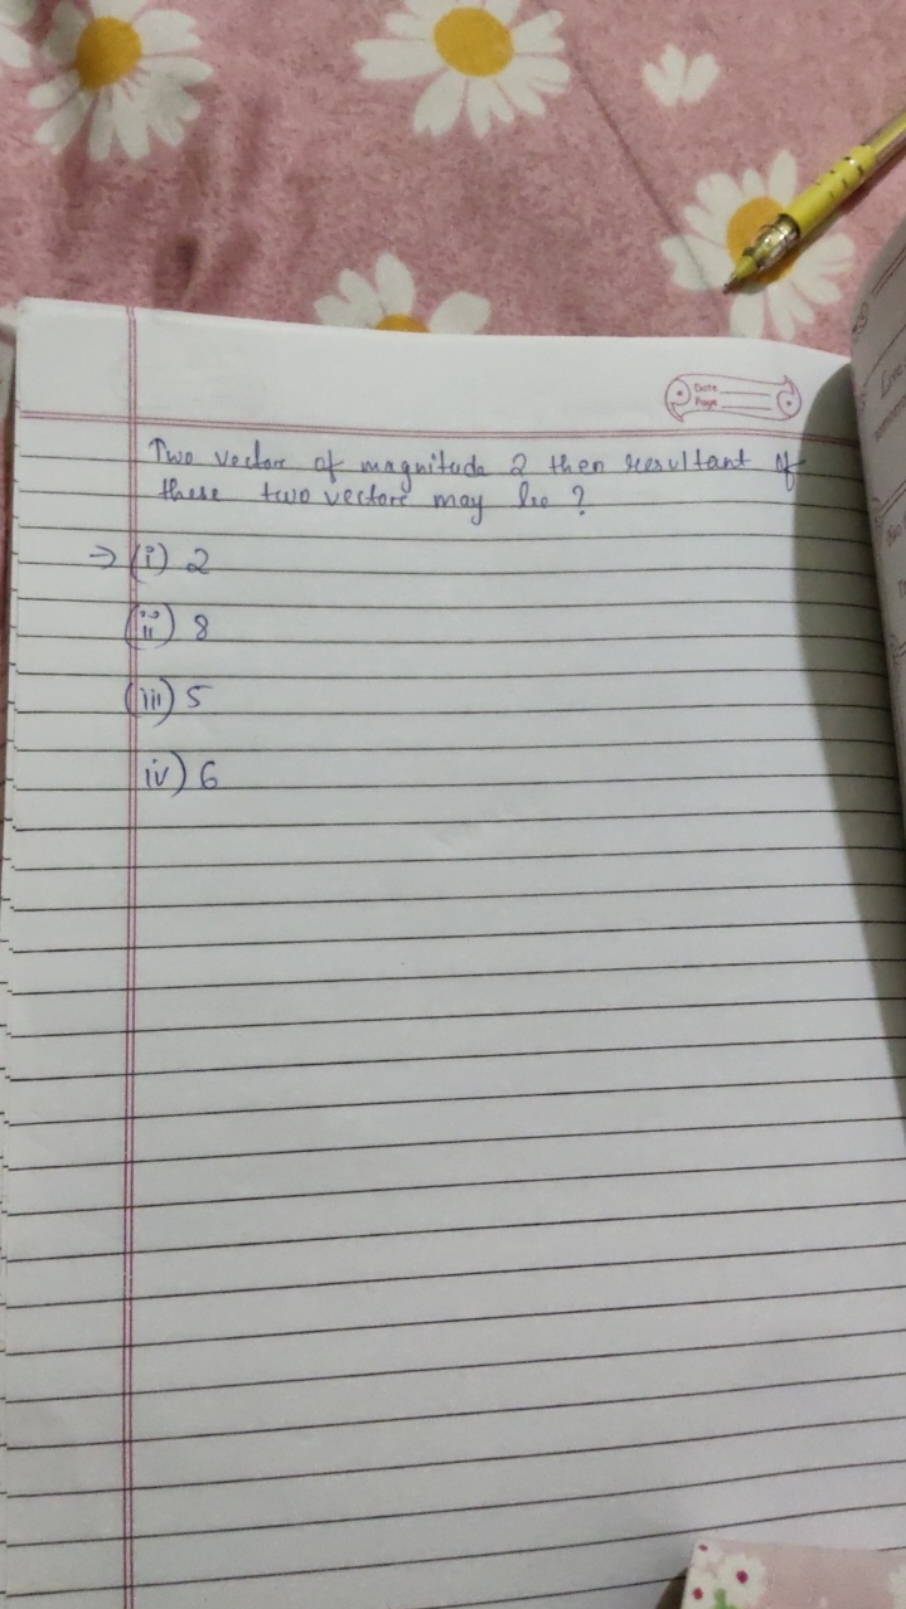 Date
Page
Two vector of magnitude 2 then resultant of
these two vectors may be ?
→ (i) 2
(ii) 8
(iii) 5
iv) 6